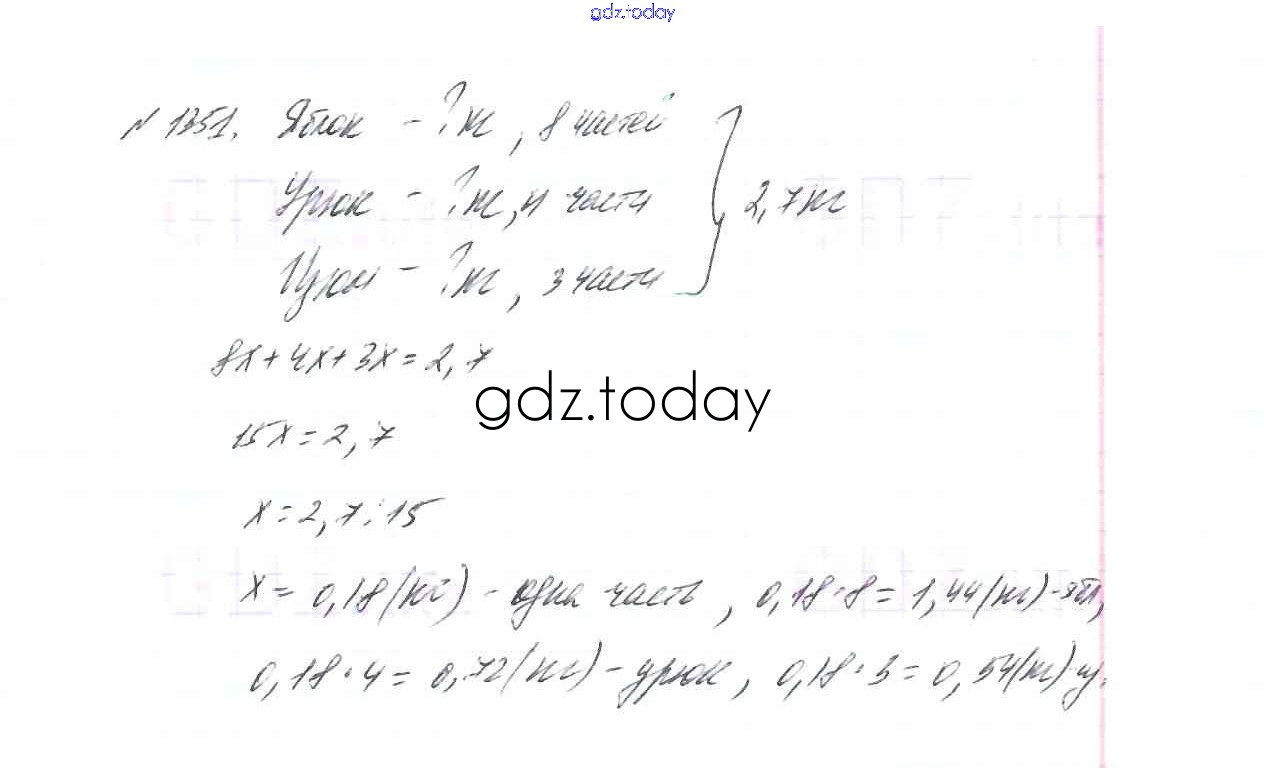 gdz.today
N 1351. Яблок - ? кг, 8 частей
Урюк - ? кг, 4 части
Изюм - ? кг, 3 части
2,7 кг
8x+4x+3x=2,7
gdz.today
15x=2,7
x=2,7:15
x=0,18(кг) - одна часть, 0,18·8=1,44(кг)-ябл,
0,18·4=0,72(кг)-урюк, 0,18·3=0,54(кг)-и.